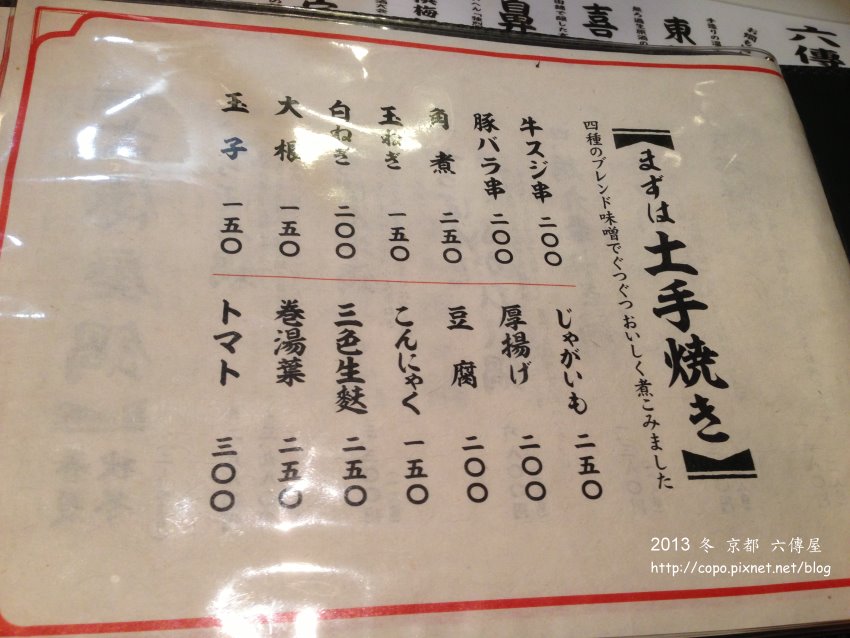 六傳
東
喜
鼻
【まずは土手焼き】
四種のブレンド味噌でぐつぐつおいしく煮こみました
牛スジ串 二〇〇
豚バラ串 二〇〇
角煮 二五〇
玉ねぎ 一五〇
白ねぎ 二〇〇
大根 一五〇
玉子 一五〇
じゃがいも 二五〇
厚揚げ 二〇〇
豆腐 二〇〇
こんにゃく 一五〇
三色生麩 二五〇
巻湯葉 二五〇
トマト 三〇〇
2013 冬 京都 六傳屋
http://copo.pixnet.net/blog